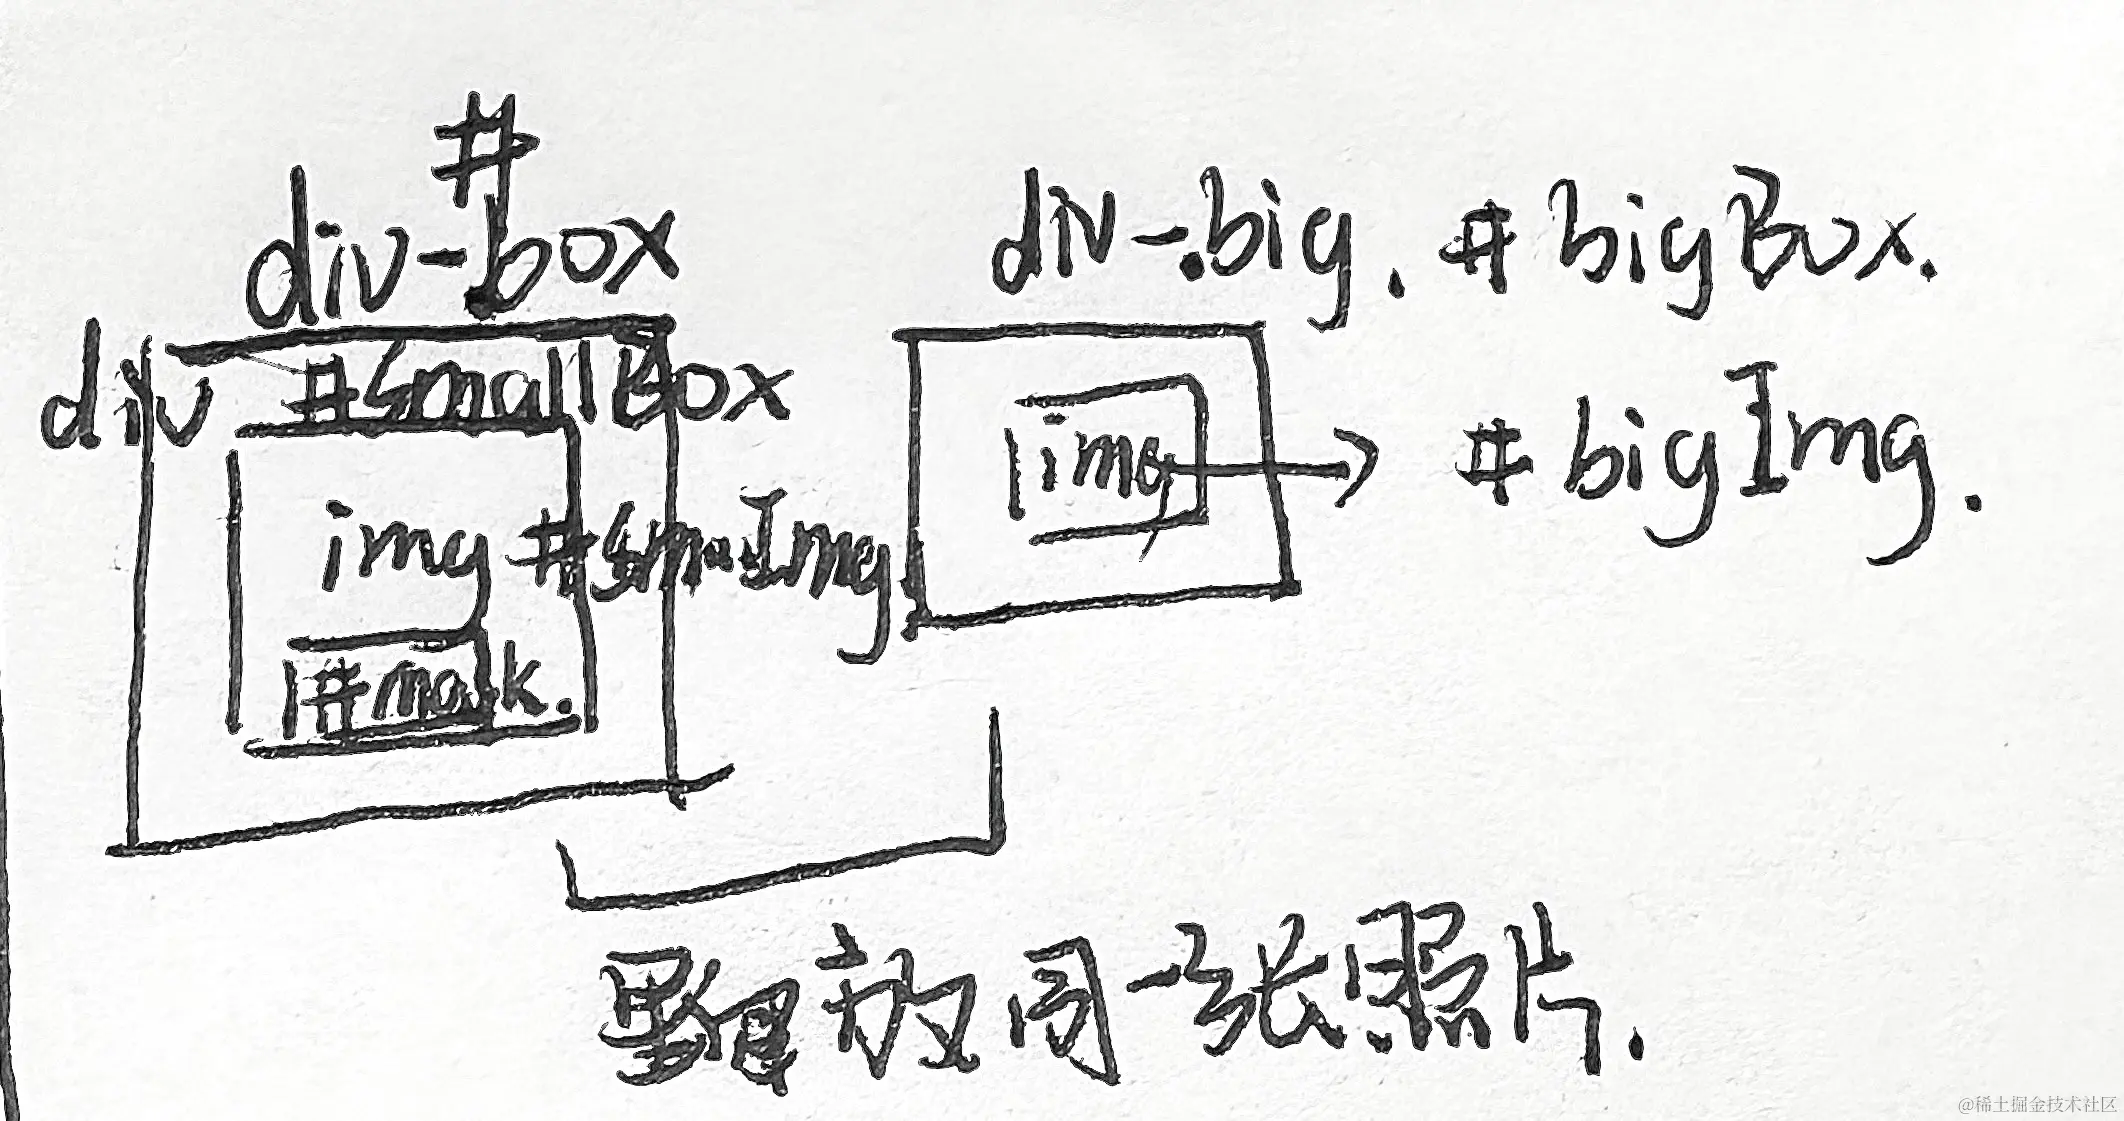 #
div-.box
div-.big. #bigBox.
div #smallBox
img #smallImg
img
#bigImg.
#mask.
里面放同一张照片.
@稀土掘金技术社区